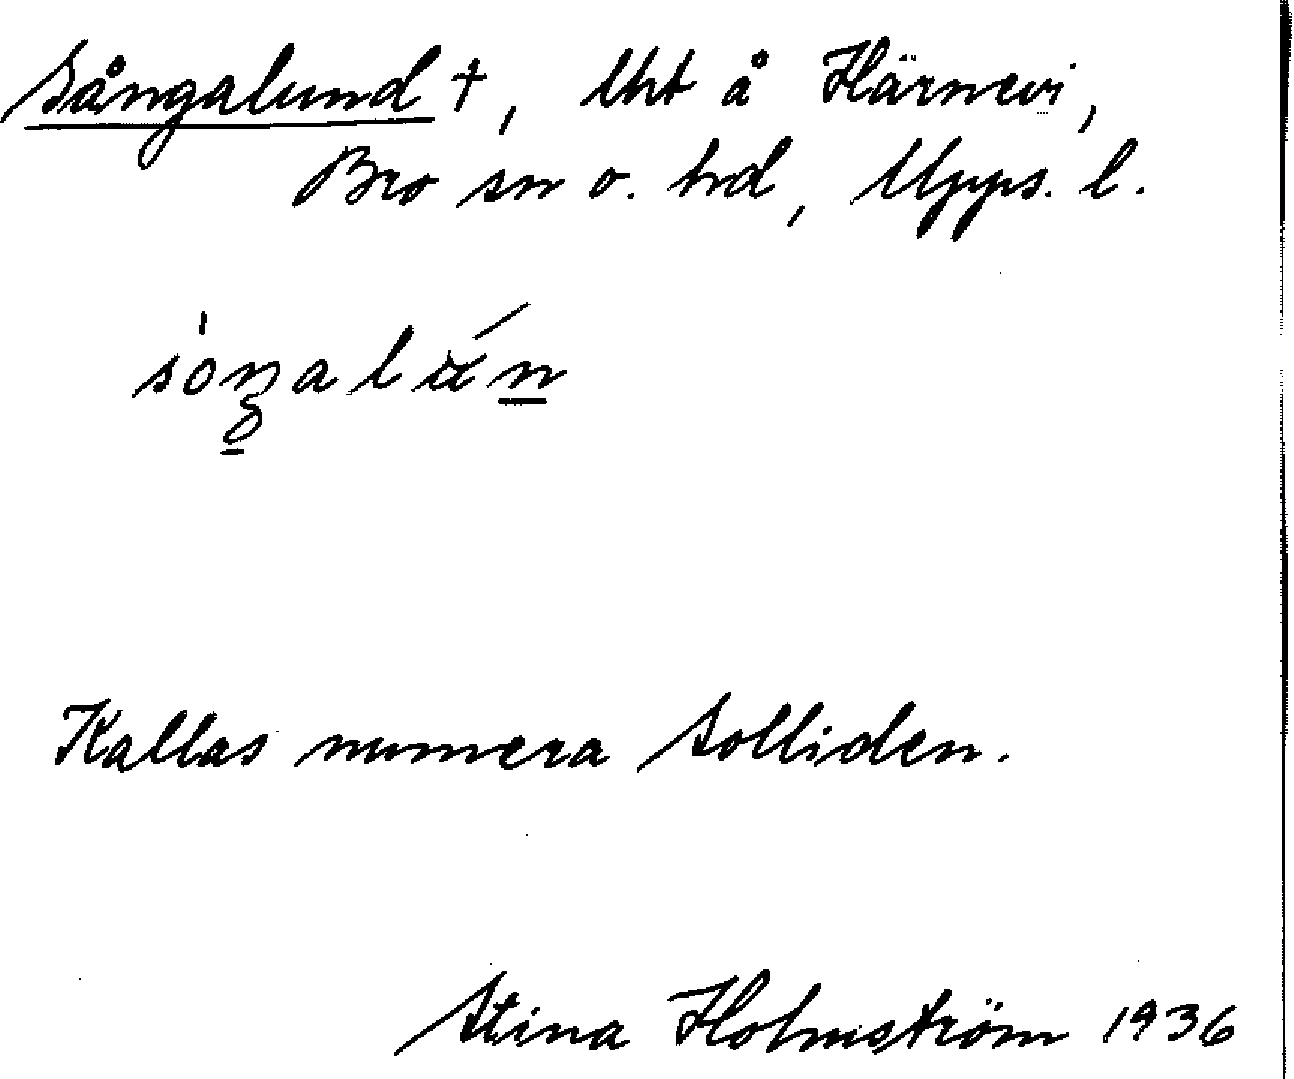 Sångalund †, Uht å Härnevi,
Bro sn o. hd, Upps. l.
Kallas numera Solliden.
Stina Holmström 1936